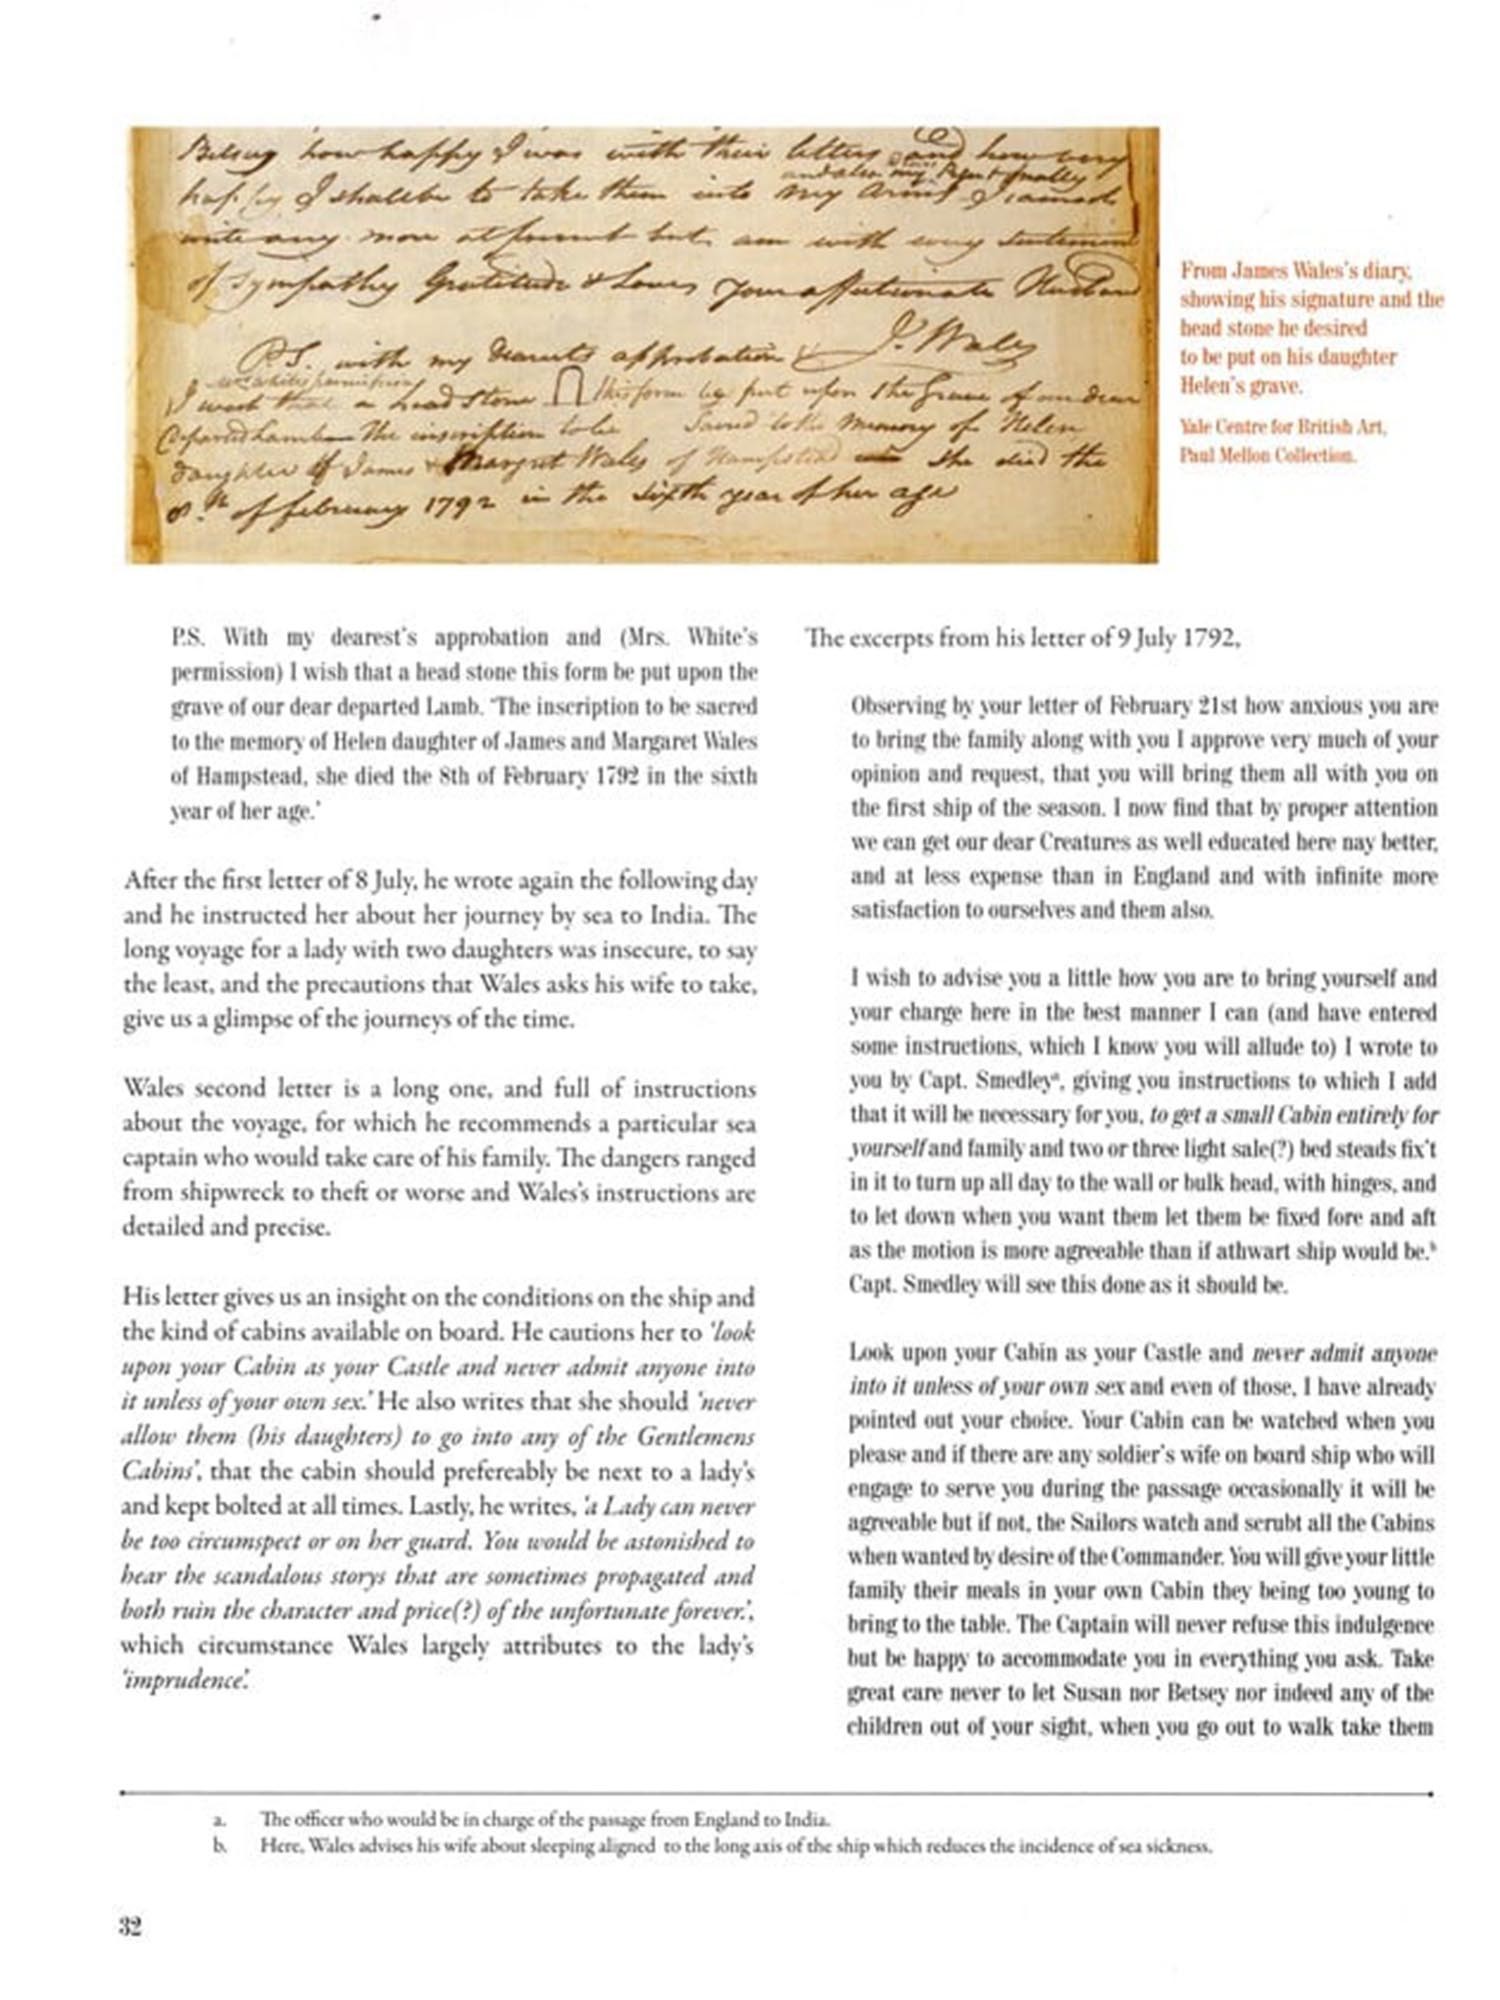 Betsey how happy I was with their letters and how very
and also my
happy I shall be to take them into my arms I cannot
write any more at present but am with every sentiment
of sympathy Gratitude & Love, your affectionate Husband
J. Wales
P.S. with my dearests approbation &
I wish that a head stone this form be put upon the Grave of our dear
Departed Lamb The inscription to be Sacred to the memory of Helen
daughter of James & Margret Wales of Hampstead she died the
8th of february 1792 in the sixth year of her age
From James Wales's diary,
showing his signature and the
head stone he desired
to be put on his daughter
Helen's grave.
Yale Centre for British Art,
Paul Mellon Collection.
P.S. With my dearest's approbation and (Mrs. White's
permission) I wish that a head stone this form be put upon the
grave of our dear departed Lamb. 'The inscription to be sacred
to the memory of Helen daughter of James and Margaret Wales
of Hampstead, she died the 8th of February 1792 in the sixth
year of her age.'
After the first letter of 8 July, he wrote again the following day
and he instructed her about her journey by sea to India. The
long voyage for a lady with two daughters was insecure, to say
the least, and the precautions that Wales asks his wife to take,
give us a glimpse of the journeys of the time.
Wales second letter is a long one, and full of instructions
about the voyage, for which he recommends a particular sea
captain who would take care of his family. The dangers ranged
from shipwreck to theft or worse and Wales's instructions are
detailed and precise.
His letter gives us an insight on the conditions on the ship and
the kind of cabins available on board. He cautions her to 'look
upon your Cabin as your Castle and never admit anyone into
it unless of your own sex.' He also writes that she should 'never
allow them (his daughters) to go into any of the Gentlemens
Cabins', that the cabin should prefereably be next to a lady's
and kept bolted at all times. Lastly, he writes, 'a Lady can never
be too circumspect or on her guard. You would be astonished to
hear the scandalous storys that are sometimes propagated and
both ruin the character and price(?) of the unfortunate forever.',
which circumstance Wales largely attributes to the lady's
'imprudence'.
The excerpts from his letter of 9 July 1792,
Observing by your letter of February 21st how anxious you are
to bring the family along with you I approve very much of your
opinion and request, that you will bring them all with you on
the first ship of the season. I now find that by proper attention
we can get our dear Creatures as well educated here nay better,
and at less expense than in England and with infinite more
satisfaction to ourselves and them also.
I wish to advise you a little how you are to bring yourself and
your charge here in the best manner I can (and have entered
some instructions, which I know you will allude to) I wrote to
you by Capt. Smedleyª, giving you instructions to which I add
that it will be necessary for you, to get a small Cabin entirely for
yourself and family and two or three light sale(?) bed steads fix't
in it to turn up all day to the wall or bulk head, with hinges, and
to let down when you want them let them be fixed fore and aft
as the motion is more agreeable than if athwart ship would be.ᵇ
Capt. Smedley will see this done as it should be.
Look upon your Cabin as your Castle and never admit anyone
into it unless of your own sex and even of those, I have already
pointed out your choice. Your Cabin can be watched when you
please and if there are any soldier's wife on board ship who will
engage to serve you during the passage occasionally it will be
agreeable but if not, the Sailors watch and scrubt all the Cabins
when wanted by desire of the Commander. You will give your little
family their meals in your own Cabin they being too young to
bring to the table. The Captain will never refuse this indulgence
but be happy to accommodate you in everything you ask. Take
great care never to let Susan nor Betsey nor indeed any of the
children out of your sight, when you go out to walk take them
a. The officer who would be in charge of the passage from England to India.
b. Here, Wales advises his wife about sleeping aligned to the long axis of the ship which reduces the incidence of sea sickness.
32